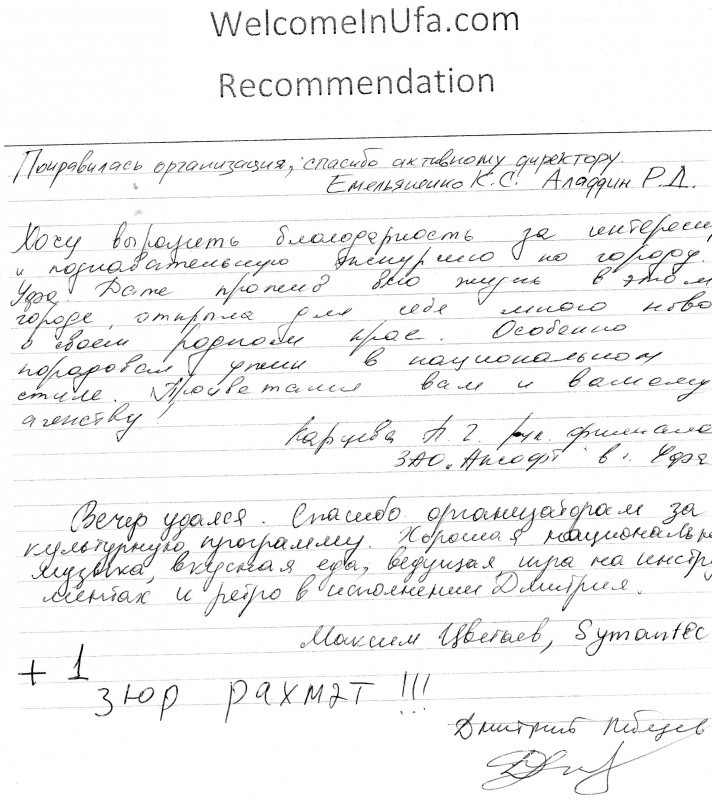 WelcomeInUfa.com
Recommendation
Понравилась организация, спасибо активному директору.
Емельяненко К.С. Аладдин Р.Д.
Хочу выразить благодарность за интересн
и познавательную экскурсию по городу.
Уфа. Даже прожив всю жизнь в этом
городе, открыла для себя много ново
о своем родном крае. Особенно
порадовал ужин в национальном
стиле. Процветания вам и вашему
агенству!
Карцева рук. филиала
ЗАО "Аксофт" в г. Уфа
Вечер удался. Спасибо организаторам за
культурную программу. Хорошая национальна
музыка, вкусная еда, ведущая, игра на инстру
ментах и ретро в исполнении Дмитрия.
Максим Цветаев, Symantec
+1
зюр рахмэт !!!
Дмитрий